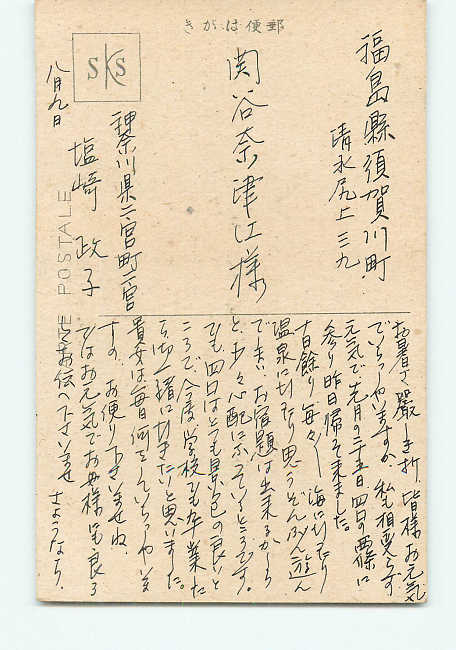 きがは便郵
SKS
CARTE POSTALE
福島縣須賀川町
清水尻上三九
関谷奈津江様
神奈川県二宮町二宮
塩崎政子
八月九日
お暑さ厳しき折、皆様お元気
でいらっしゃいますか。私も相変らず
元気で、先月の二十五日四国の西條に
参り昨日帰って来ました。
十日餘り毎々海に行ったり
温泉に行たり思うぞんぶん遊ん
でしまい、お宿題は出来るかしら
と、少々心配になっているところです。
でも四国はとても景色の良いと
ころで、今度学校でも卒業た
ら御一緒に行きたいと思いました。
貴女は毎日何をしていらっしゃいま
すの、お便り下さいませね
ではお元気でお母様にも良ろ
しくお伝へ下さいませ さようなら.